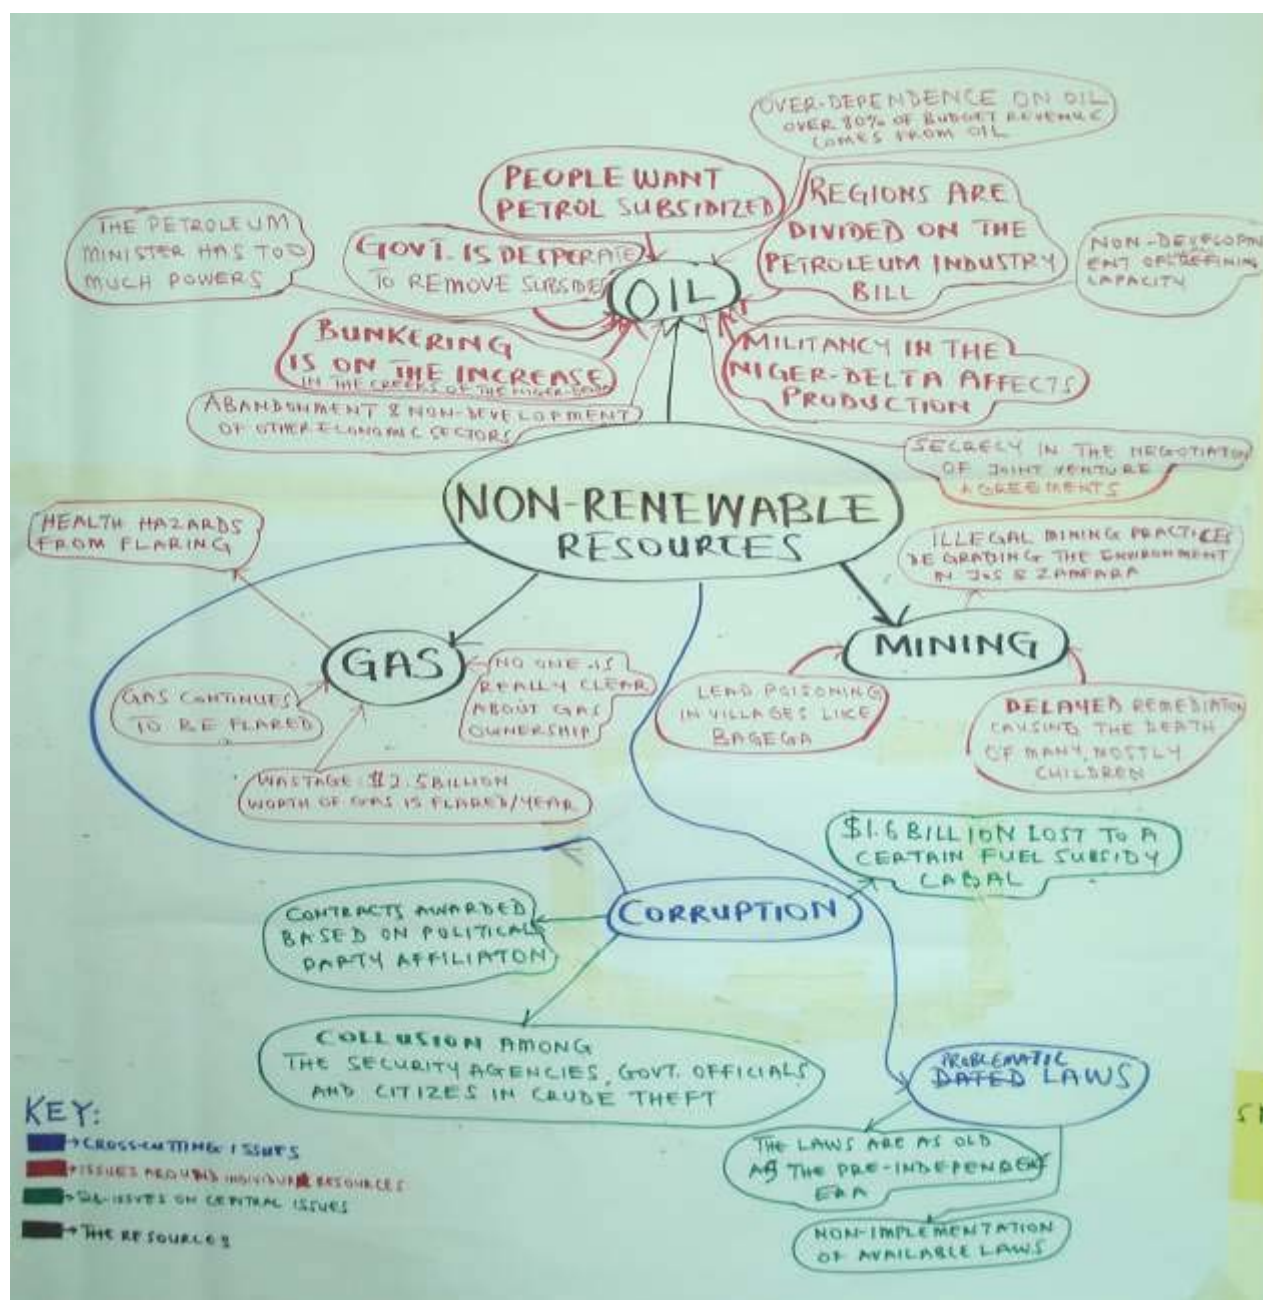 OVER-DEPENDENCE ON OIL
OVER 80% OF BUDGET REVENUE
COMES FROM OIL
PEOPLE WANT
PETROL SUBSIDIZED
REGIONS ARE
DIVIDED ON THE
PETROLEUM INDUSTRY
BILL
THE PETROLEUM
MINISTER HAS TOO
MUCH POWERS
GOVT. IS DESPERATE
TO REMOVE
OIL
NON-DEVELOPM
ENT OF REFINING
CAPACITY
BUNKERING
IS ON THE INCREASE
IN THE CREEKS OF THE NIGER-DELTA
MILITANCY IN THE
NIGER-DELTA AFFECTS
PRODUCTION
ABANDONMENT & NON-DEVELOPMENT
OF OTHER ECONOMIC SECTORS
SECRECY IN THE NEGOTIATION
OF JOINT VENTURE
AGREEMENTS
NON-RENEWABLE
RESOURCES
HEALTH HAZARDS
FROM FLARING
ILLEGAL MINING PRACTICES
DEGRADING THE ENVIRONMENT
IN JOS & ZAMFARA
GAS
MINING
NO ONE IS
REALLY CLEAR
ABOUT GAS
OWNERSHIP
GAS CONTINUES
TO BE FLARED
LEAD POISONING
IN VILLAGES LIKE
BAGEGA
DELAYED REMEDIATION
CAUSING THE DEATH
OF MANY, MOSTLY
CHILDREN
WASTAGE: $2.5 BILLION
WORTH OF GAS IS FLARED/YEAR
$1.6 BILLION LOST TO A
CERTAIN FUEL SUBSIDY
CABAL
CORRUPTION
CONTRACTS AWARDED
BASED ON POLITICAL
PARTY AFFILIATON
COLLUSION AMONG
THE SECURITY AGENCIES, GOVT. OFFICIALS
AND CITIZES IN CRUDE THEFT
PROBLEMATIC
DATED LAWS
THE LAWS ARE AS OLD
AS THE PRE-INDEPENDENCE
ERA
NON-IMPLEMENTATION
OF AVAILABLE LAWS
KEY:
CROSS-CUTTING ISSUES
ISSUES AROUND INDIVIDUAL RESOURCES
ISSUES ON CENTRAL ISSUES
THE RESOURCES